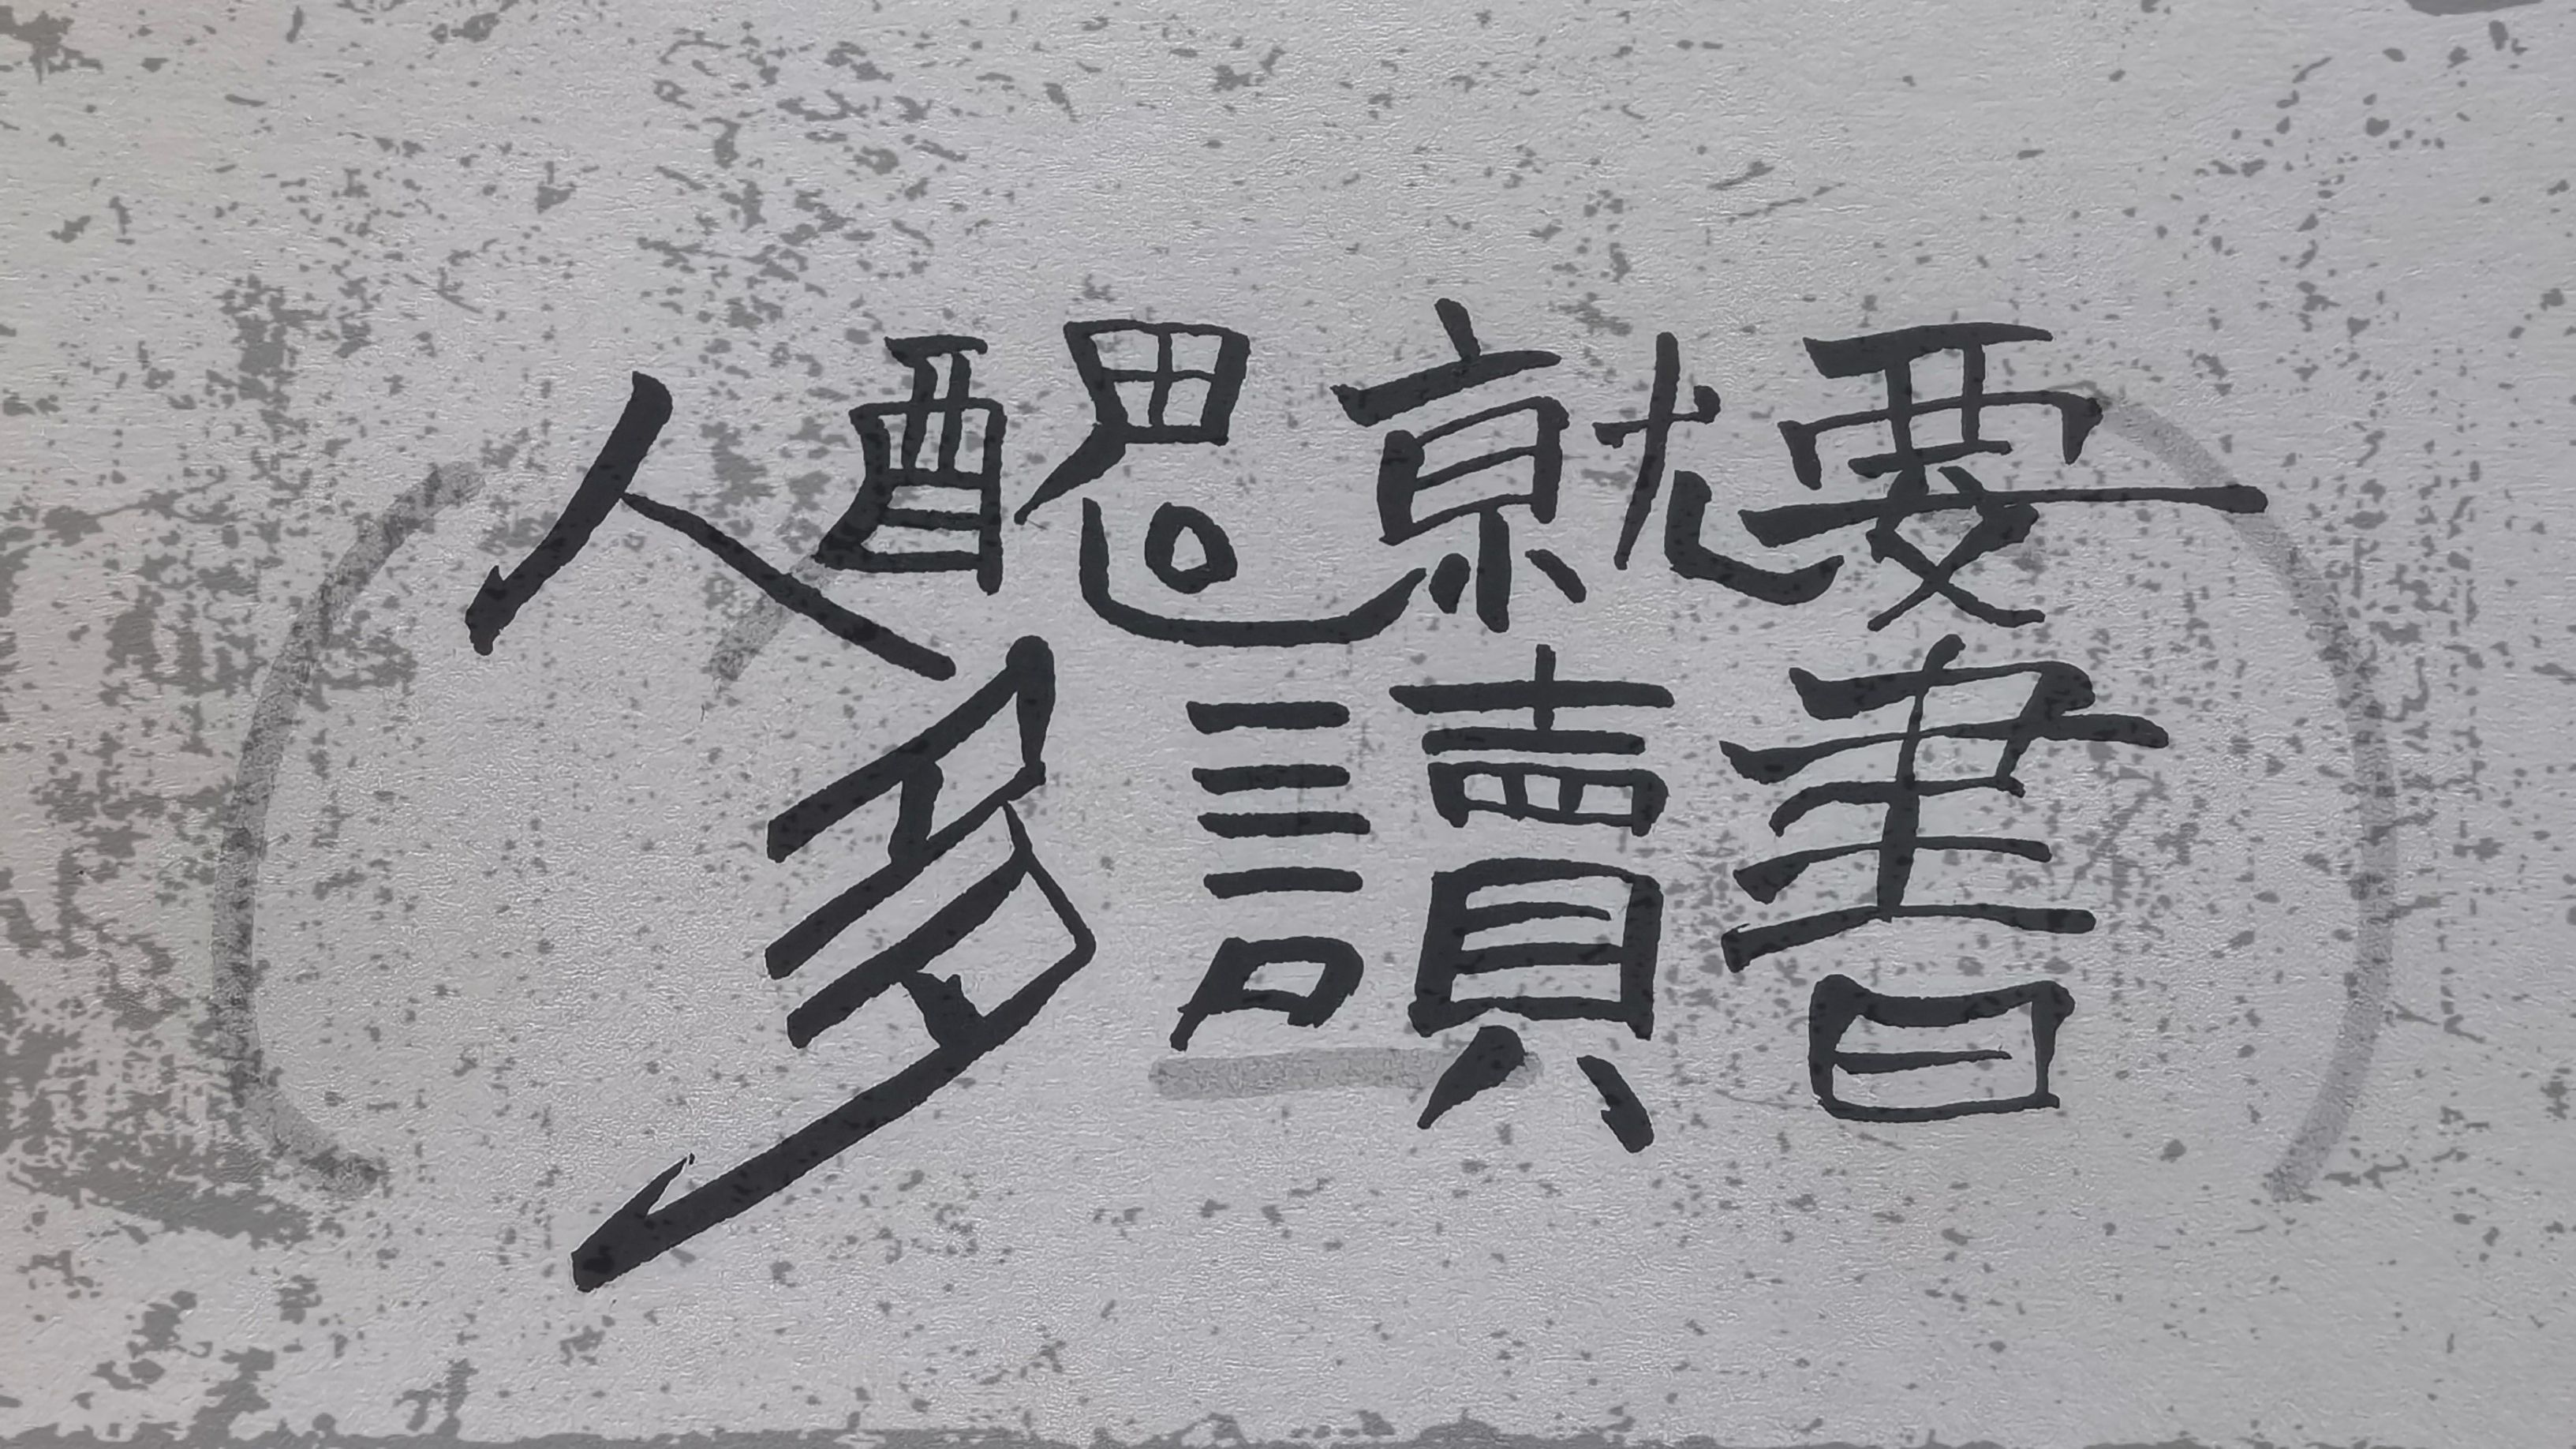 人醜就要
多讀書